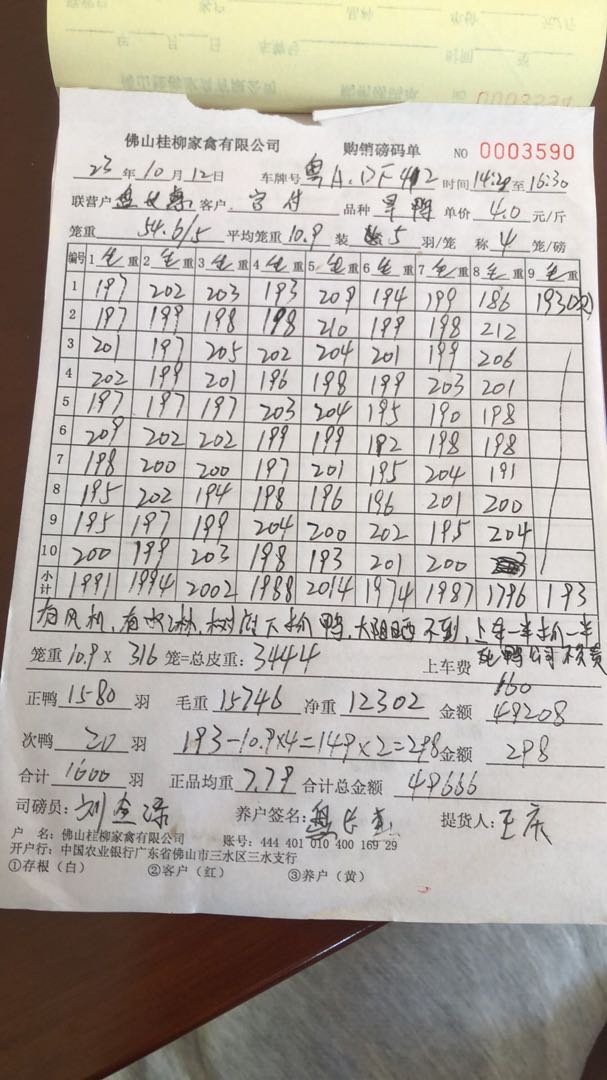 佛山桂柳家禽有限公司 购销磅码单 NO 0003590
23年10月12日 车牌号 粤A.DF412 时间14:20至16:30
联营户 客户 品种 旱鸭 单价 4.0 元/斤
笼重 54.6/5 平均笼重10.9 装 5 羽/笼 称 4 笼/磅
编号 1 毛重 2 毛重 3 毛重 4 毛重 5 毛重 6 毛重 7 毛重 8 毛重 9 毛重
1 197 202 203 193 209 194 199 186 193
2 197 199 198 198 210 199 198 212
3 201 197 205 202 204 201 199 206
4 202 199 201 196 198 199 203 201
5 197 197 197 203 204 195 190 198
6 209 202 202 199 199 192 198 198
7 198 200 200 197 201 195 204 191
8 195 202 194 198 196 196 201 200
9 195 197 199 204 200 202 195 204
10 200 199 203 198 193 201 200
小计 1991 1994 2002 1988 2014 1974 1987 1796 193
有风机,有水淋,树底下抓鸭,太阳晒不到,上车一半抓一半
死鸭公司不负责
笼重10.9 X 316 笼=总皮重:3444 上车费 160
正鸭 1580 羽 毛重 15746 净重 12302 金额 49208
次鸭 20 羽 193-10.9×4=149×2=298 金额 298
合计 1600 羽 正品均重 7.79 合计总金额 49666
司磅员: 养户签名: 提货人:王庆
户 名:佛山桂柳家禽有限公司 账号:444 401 010 400 169 29
开户行:中国农业银行广东省佛山市三水区三水支行
①存根(白) ②客户(红) ③养户(黄)